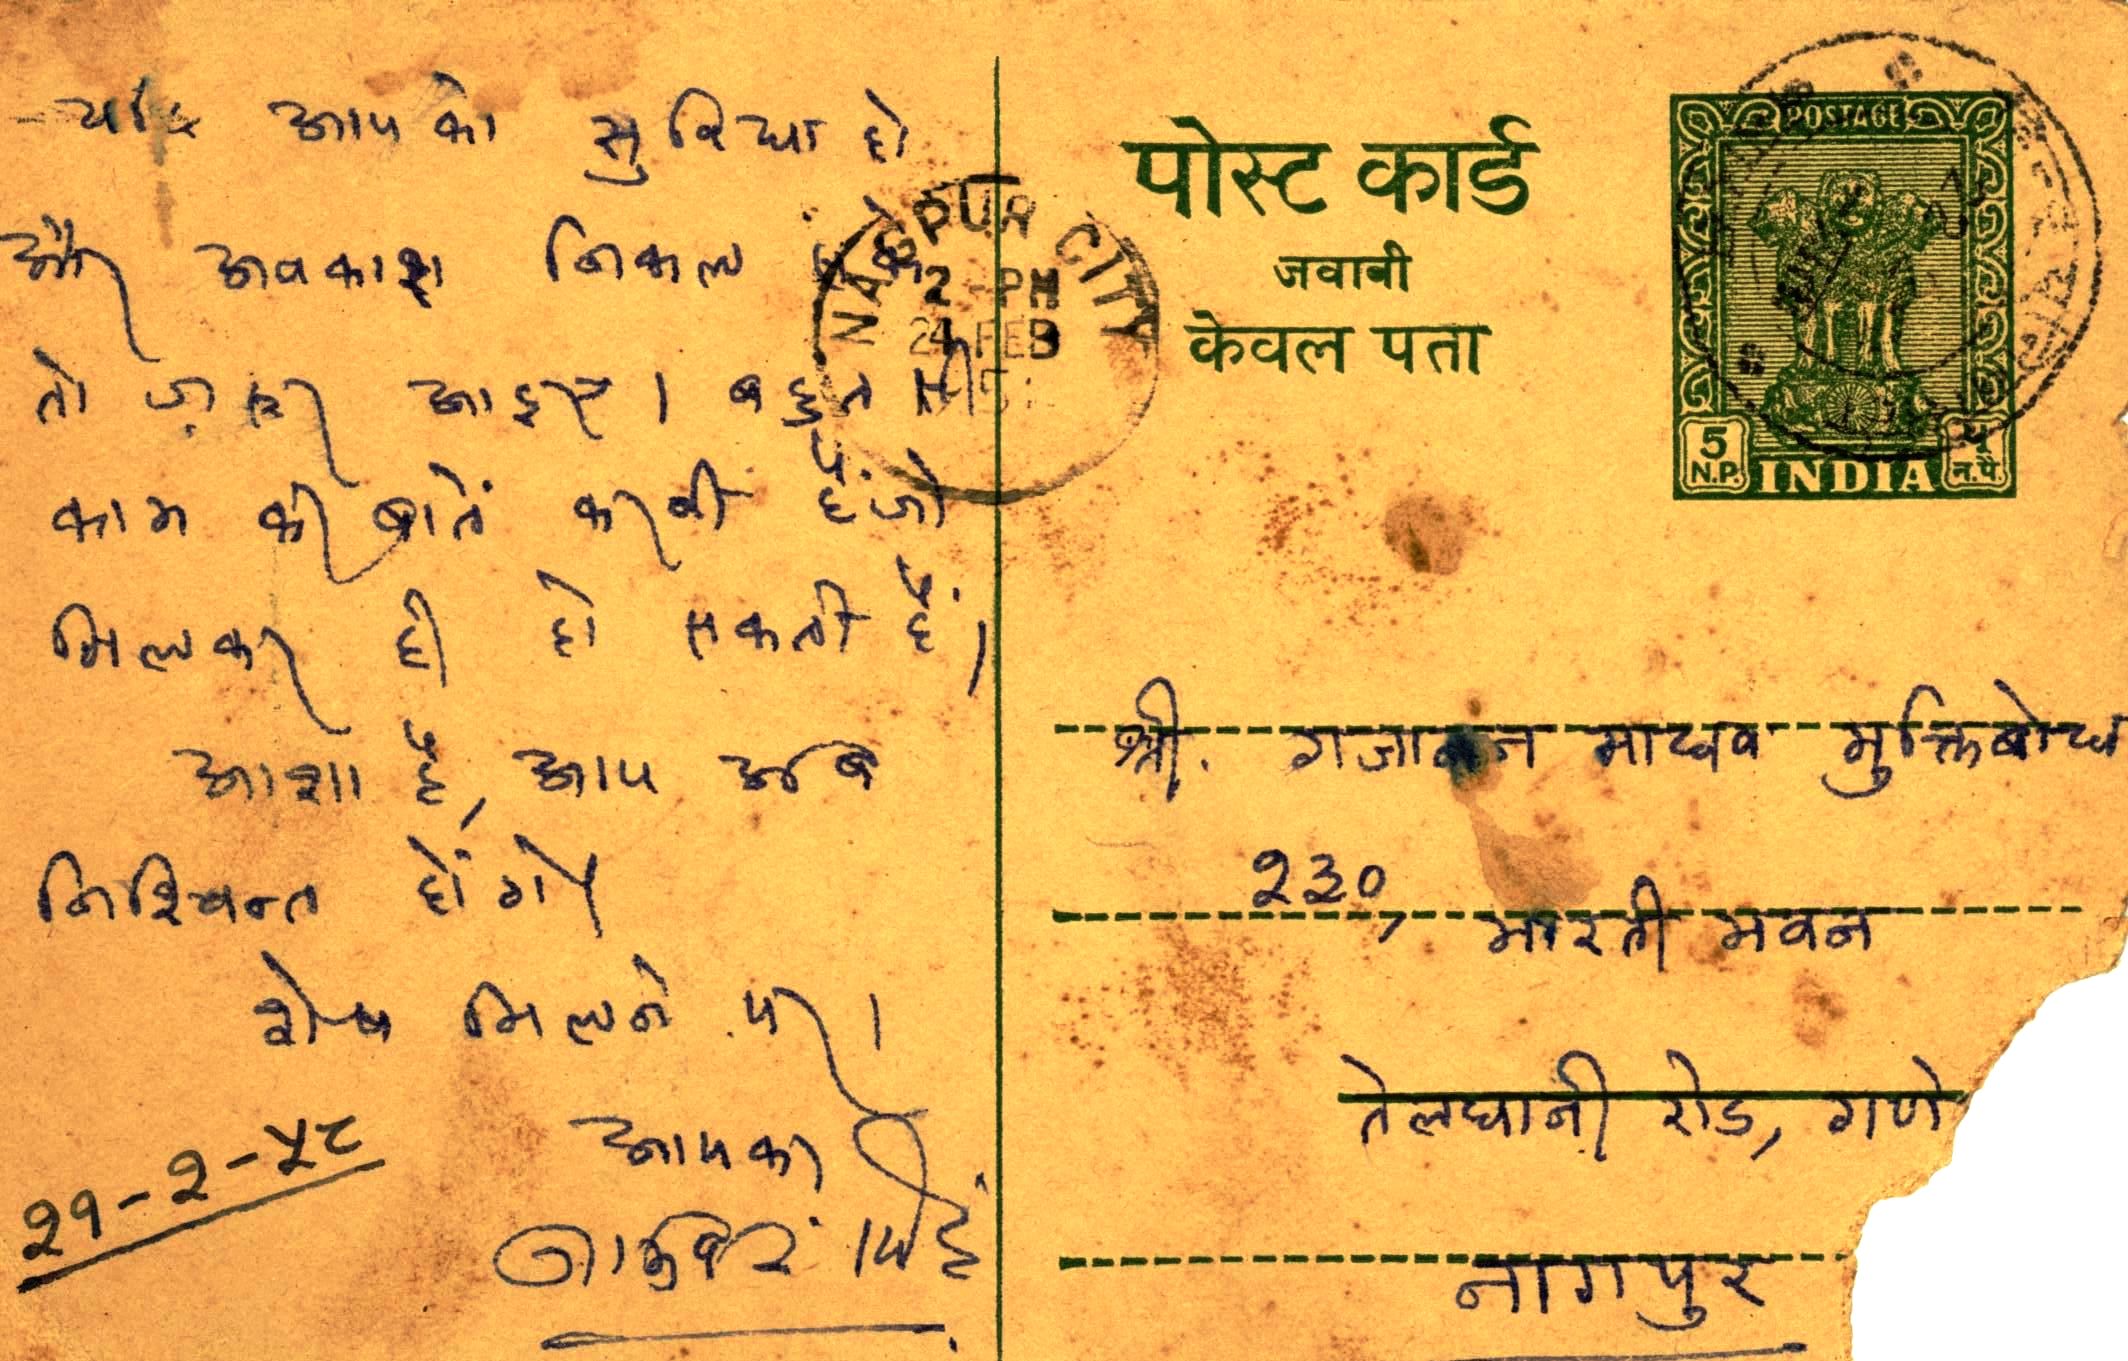 यदि आपको सुविधा हो
और अवकाश निकल सके
तो ज़रूर आइए। बहुत सी
काम की बातें करनी हैं जो
मिलकर ही हो सकती हैं।
आशा है, आप अब
निश्चिन्त होंगे।
शेष मिलने पर।
आपका
२१-२-५८
NAGPUR CITY
2-PM
24 FEB
पोस्ट कार्ड
जवाबी
केवल पता
POSTAGE
5 N.P. INDIA ५ न.पै.
श्री. गजानन माधव मुक्तिबोध
२३०, भारती भवन
तेलघानी रोड, गणे
नागपुर